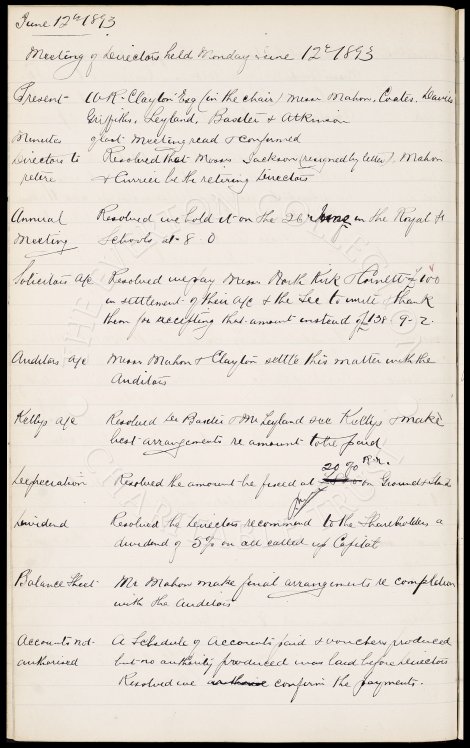 June 12th 1893
Meeting of Directors held Monday June 12th 1893
Present - W.R. Clayton Esq (in the chair) Messrs Mahon, Coates, Davies
Griffiths, Leyland, Baxter & Atkinson
Minutes of last Meeting read & confirmed
Directors to retire Resolved that Messrs Jackson (resigned by letter), Mahon
& Currier be the retiring Directors
Annual Meeting Resolved we hold it on the 26th June in the Royal St
Schools at 8-0
Solicitors a/c Resolved we pay Messrs North Kirk & Cornett £100
in settlement of their a/c & the Sec to write & thank
them for accepting that amount instead of £138-9-2.
Auditors a/c Messrs Mahon & Clayton settle this matter with the
Auditors
Kellys a/c Resolved Dr Baxter & Mr Leyland see Kellys & make
best arrangements re amount to be paid
Depreciation Resolved the amount be fixed at 20% on Ground & Stands
Dividend Resolved the Directors recommend to the Shareholders a
dividend of 5% on all called up Capital
Balance Sheet Mr Mahon make final arrangements re completion
with the Auditors
Accounts not authorised A Schedule of Accounts paid & vouchers produced
but no authority produced was laid before Directors
Resolved we confirm the payments.
THE EVERTON COLLECTION
CHARITABLE TRUST